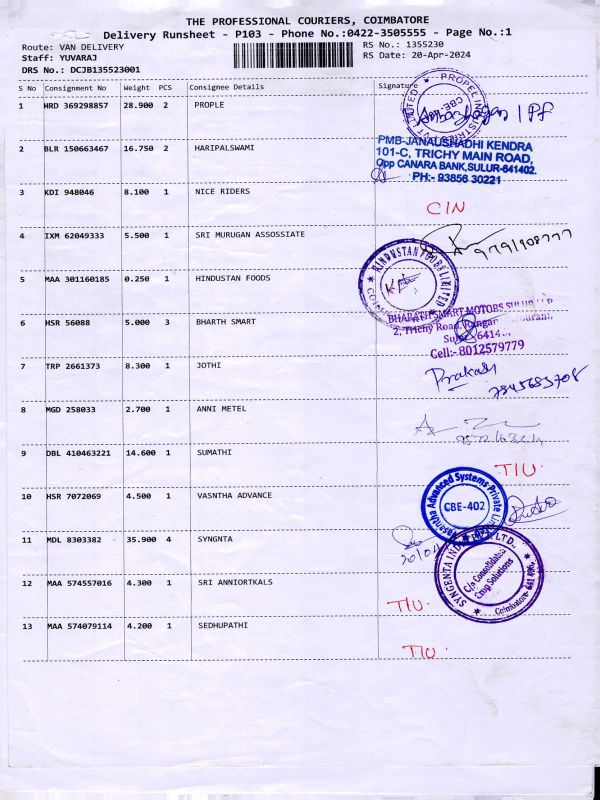 THE PROFESSIONAL COURIERS, COIMBATORE
Delivery Runsheet - P103 - Phone No.:0422-3505555 - Page No.:1
Route: VAN DELIVERY RS No.: 1355230
Staff: YUVARAJ RS Date: 20-Apr-2024
DRS No.: DCJB135523001
S No Consignment No Weight PCS Consignee Details Signature
1 HRD 369298857 28.900 2 PROPLE
CBE-
2 BLR 150663467 16.750 2 HARIPALSWAMI
PMB-JANAUSHADHI KENDRA
101-C, TRICHY MAIN ROAD,
Opp CANARA BANK, SULUR-641402.
PH:- 93856 30221
3 KDI 948046 8.100 1 NICE RIDERS
CIN
4 IXM 62049333 5.500 1 SRI MURUGAN ASSOSSIATE
5 MAA 301160185 0.250 1 HINDUSTAN FOODS
HINDUSTAN FOODS LIMITED
6 HSR 56088 5.000 3 BHARTH SMART
BHARATH SMART MOTORS SULUR
2, Trichy Road,
Cell:- 8012579779
7 TRP 2661373 8.300 1 JOTHI
Prakash
8 MGD 258033 2.700 1 ANNI METEL
9 DBL 410463221 14.600 1 SUMATHI
TIU.
10 HSR 7072069 4.500 1 VASNTHA ADVANCE
Vasantha Advanced Systems Private
CBE-402
11 MDL 8303382 35.900 4 SYNGNTA
SYNGENTA INDIA PVT. LTD.,
C/o Consolidated
Crop Solutions
Coimbatore-
12 MAA 574557016 4.300 1 SRI ANNIORTKALS
TIU.
13 MAA 574079114 4.200 1 SEDHUPATHI
TIU.